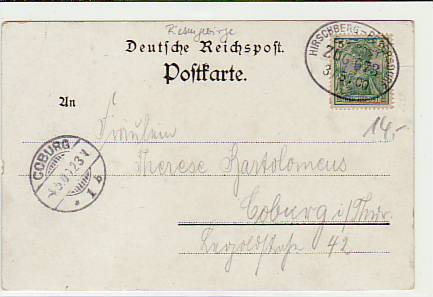 Riesengebirge
Deutsche Reichspost.
Postkarte.
HIRSCHBERG-PETERSDORF
ZUG 673
14,-
An
Fräulein
COBURG
1 b
Therese Bartolomeus
Coburg i/Thür.
Leopoldstraße 42